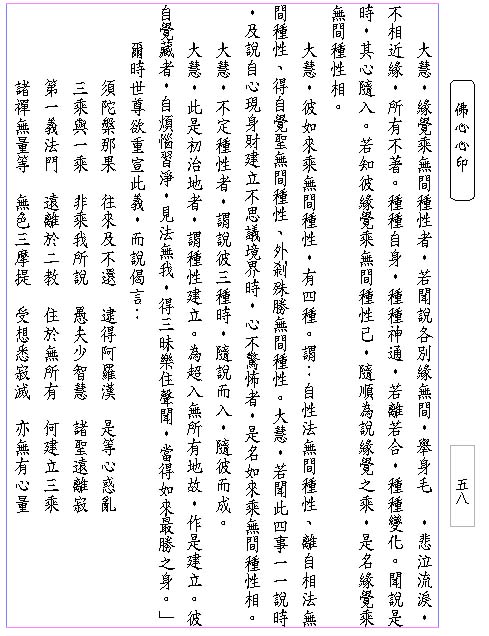 佛心心印
五八
大慧，緣覺乘無間種性者，若聞說各別緣無間，舉身毛　，悲泣流淚，
不相近緣，所有不著。種種自身，種種神通，若離若合，種種變化。聞說是
時，其心隨入。若知彼緣覺乘無間種性已，隨順為說緣覺之乘，是名緣覺乘
無間種性相。
大慧，彼如來乘無間種性，有四種。謂：自性法無間種性、離自相法無
間種性、得自覺聖無間種性、外剎殊勝無間種性。大慧，若聞此四事一一說時
，及說自心現身財建立不思議境界時，心不驚怖者，是名如來乘無間種性相。
大慧，不定種性者，謂說彼三種時，隨說而入，隨彼而成。
大慧，此是初治地者，謂種性建立。為超入無所有地故，作是建立。彼
自覺藏者，自煩惱習淨，見法無我，得三昧樂住聲聞，當得如來最勝之身。」
爾時世尊欲重宣此義，而說偈言：
須陀槃那果　往來及不還　逮得阿羅漢　是等心惑亂
三乘與一乘　非乘我所說　愚夫少智慧　諸聖遠離寂
第一義法門　遠離於二教　住於無所有　何建立三乘
諸禪無量等　無色三摩提　受想悉寂滅　亦無有心量